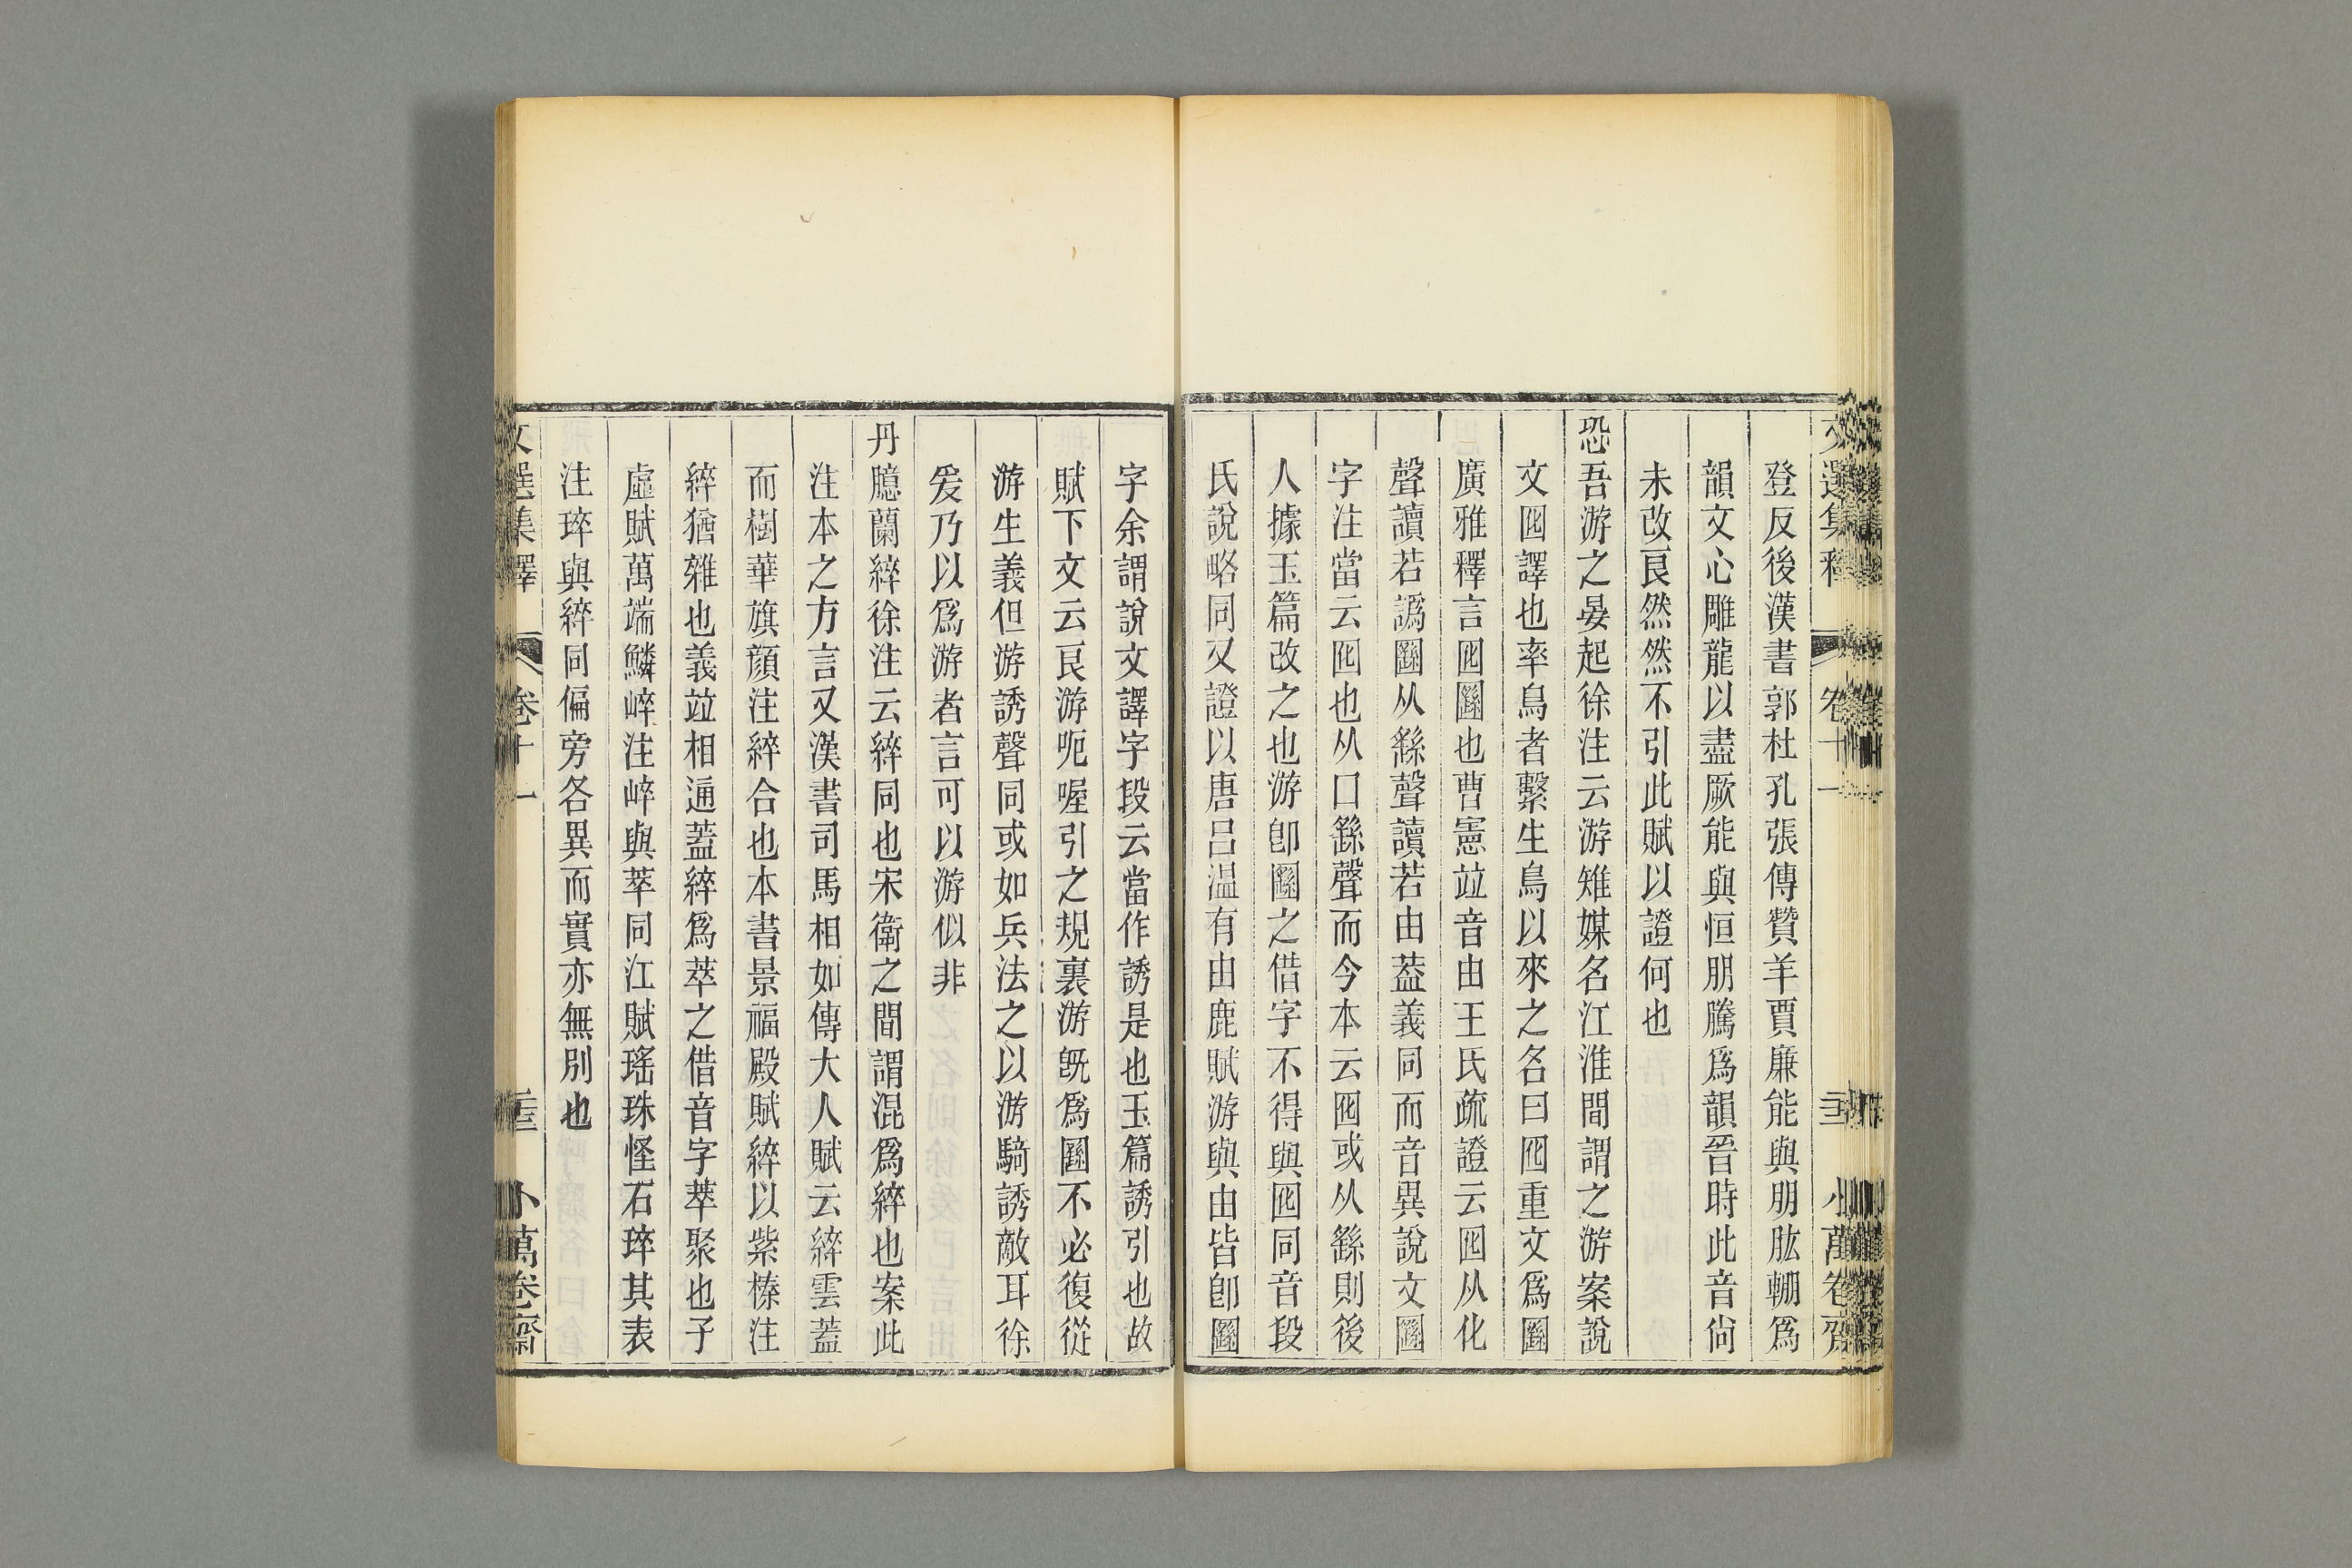 文選集釋 卷十一 二十三 小萬卷齋
登反後漢書郭杜孔張傳贊羊賈廉能與朋肱輣爲
韻文心雕龍以盡厥能與恒朋騰爲韻晉時此音尙
未改㫐然然不引此賦以證何也
恐吾游之晏起徐注云游雉媒名江淮間謂之游案說
文囮譯也率鳥者繫生鳥以來之名曰囮重文爲圝
廣雅釋言囮圝也曹憲竝音由王氏疏證云囮从化
聲讀若譌圝从繇聲讀若由葢義同而音異說文圝
字注當云囮也从口繇聲而今本云囮或从繇則後
人據玉篇改之也游卽圝之借字不得與囮同音段
氏說略同又證以唐呂温有由鹿賦游與由皆卽圝
字余謂說文譯字段云當作誘是也玉篇誘引也故
賦下文云㫐游呃喔引之規裏游旣爲圝不必復從
游生義但游誘聲同或如兵法之以游騎誘敵耳徐
爰乃以爲游者言可以游似非
丹臆蘭綷徐注云綷同也宋衛之間謂混爲綷也案此
注本之方言又漢書司馬相如傳大人賦云綷雲蓋
而樹華旗顏注綷合也本書景福殿賦綷以紫榛注
綷猶雜也義竝相通蓋綷爲萃之借音字萃聚也子
虛賦萬端鱗崪注崪與萃同江賦瑤珠怪石琗其表
注琗與綷同偏旁各異而實亦無別也
文選集釋 卷十一 小萬卷齋